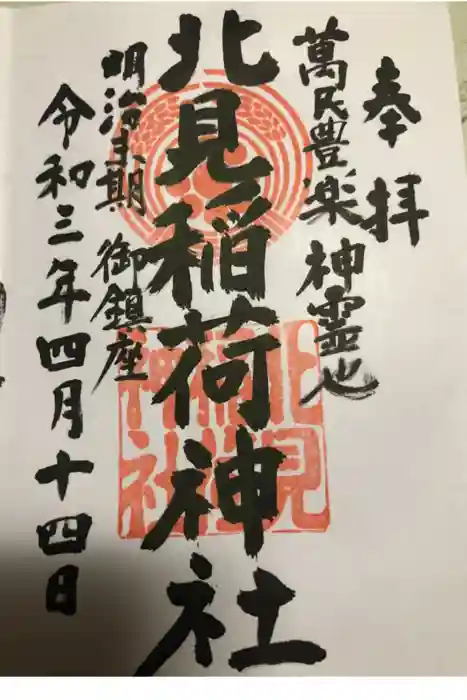 奉拝
萬民豊楽 神霊也
北見稲荷神社
明治末期 御鎮座
令和三年四月十四日
北見
稲荷
神社